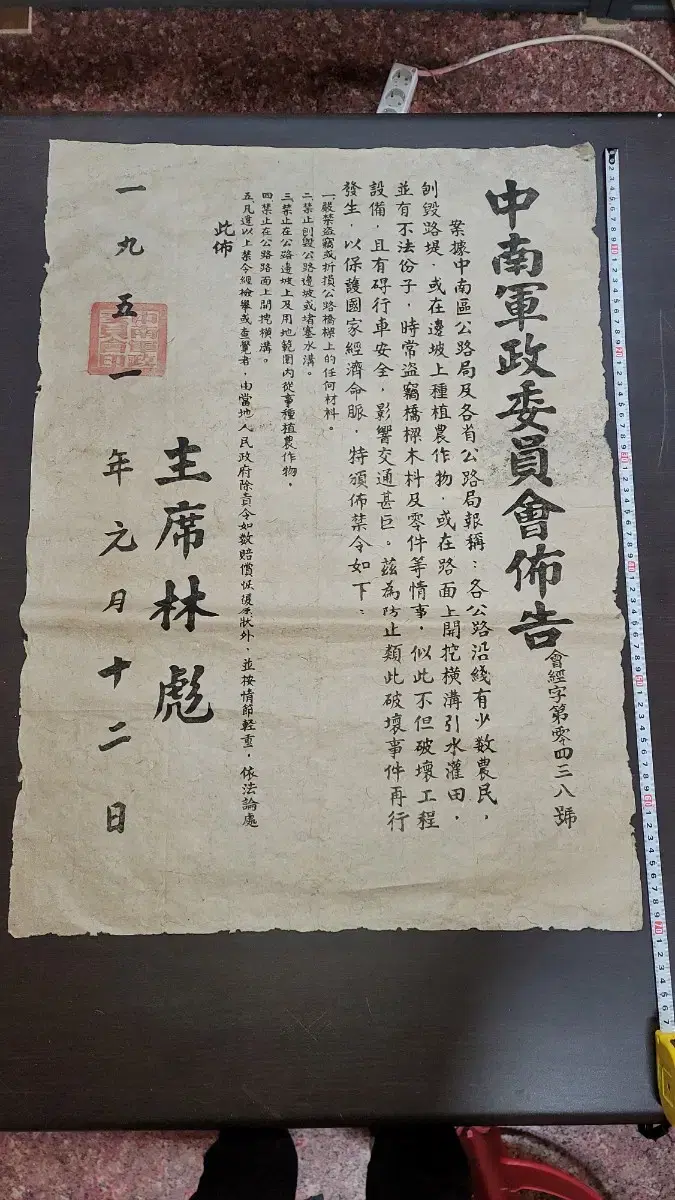 中南軍政委員會佈告
會經字第零四三八號
案據中南區公路局及各省公路局報稱：各公路沿綫有少数農民，
刨毀路堤．或在邊坡上種植農作物．或在路面上開挖橫溝引水灌田，
並有不法份子，時常盜竊橋樑木料及零件等情事．似此不但破壞工程
設備，且有碍行車安全，影響交通甚巨。茲為防止類此破壞事件再行
發生，以保護國家經濟命脈．特頒佈禁令如下：
一嚴禁盜竊或折損公路橋樑上的任何材料。
二禁止刨毀公路邊坡或堵塞水溝。
三禁止在公路邊坡上及用地範圍内從事種植農作物．
四禁止在公路路面上開挖橫溝。
五凡違以上禁令經檢舉或查覺者，由當地人民政府除責令如数賠償恢復原狀外．並按情節輕重．依法論處
此佈
主席林彪
一九五一年元月十二日
中南軍政委員會印